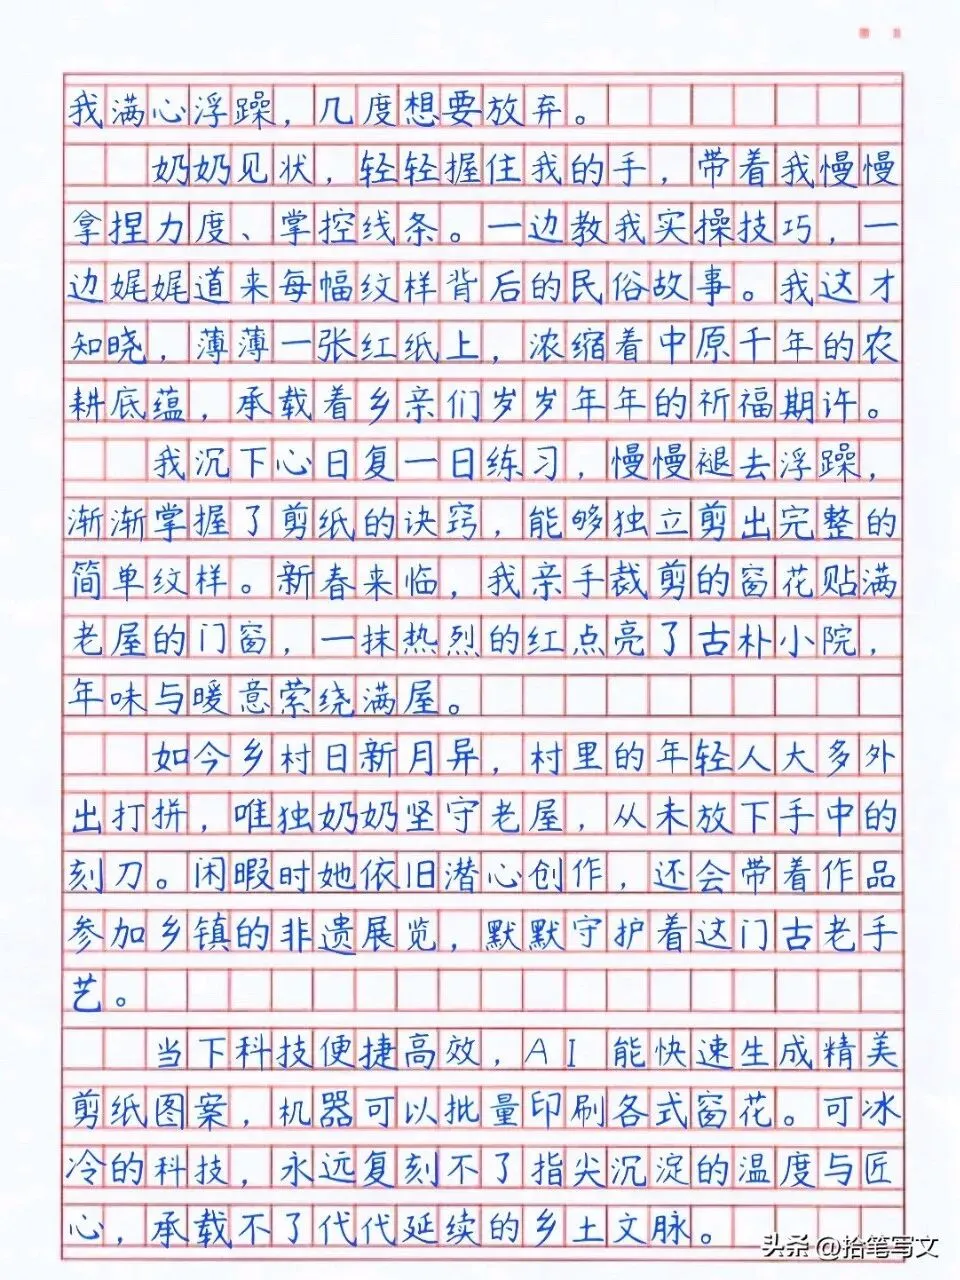 我满心浮躁，几度想要放弃。
奶奶见状，轻轻握住我的手，带着我慢慢
拿捏力度、掌控线条。一边教我实操技巧，一
边娓娓道来每幅纹样背后的民俗故事。我这才
知晓，薄薄一张红纸上，浓缩着中原千年的农
耕底蕴，承载着乡亲们岁岁年年的祈福期许。
我沉下心日复一日练习，慢慢褪去浮躁，
渐渐掌握了剪纸的诀窍，能够独立剪出完整的
简单纹样。新春来临，我亲手裁剪的窗花贴满
老屋的门窗，一抹热烈的红点亮了古朴小院，
年味与暖意萦绕满屋。
如今乡村日新月异，村里的年轻人大多外
出打拼，唯独奶奶坚守老屋，从未放下手中的
刻刀。闲暇时她依旧潜心创作，还会带着作品
参加乡镇的非遗展览，默默守护着这门古老手
艺。
当下科技便捷高效，AI能快速生成精美
剪纸图案，机器可以批量印刷各式窗花。可冰
冷的科技，永远复刻不了指尖沉淀的温度与匠
心，承载不了代代延续的乡土文脉。
头条 @拾笔写文